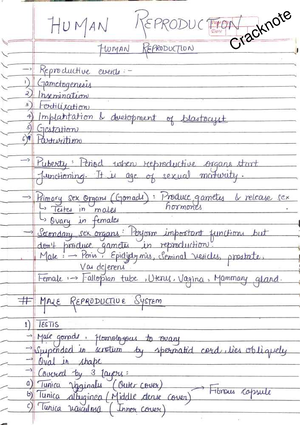 HUMAN REPRODUCTION
Cracknote
HUMAN REPRODUCTION
→ Reproductive events :-
1) Gametogenesis
2) Insemination
3) Fertilisation
4) Implantation & development of blastocyst
5) Gestation
6) Parturition
→ Puberty : Period when reproductive organs start
functioning. It is age of sexual maturity.
→ Primary Sex Organs (Gonads) : Produce gametes & release sex
hormones
↳ Testes in males
↳ Ovary in females
→ Secondary sex organs : Perform important functions but
don't produce gametes in reproduction.
Male : → Penis, Epididymis, Seminal vesicles, prostate,
Vas deferens
Female : → Fallopian tube, Uterus, Vagina, Mammary gland.
# MALE REPRODUCTIVE SYSTEM
1) TESTIS
→ Male gonads. Homologous to ovary
→ Suspended in scrotum by spermatid cord, lies obliquely
→ Oval in shape
→ Covered by 3 layers:
a) Tunica Vaginalis (Outer cover)
b) Tunica albuginea (Middle dense cover) → Fibrous capsule
c) Tunica vasculosa (Inner cover)